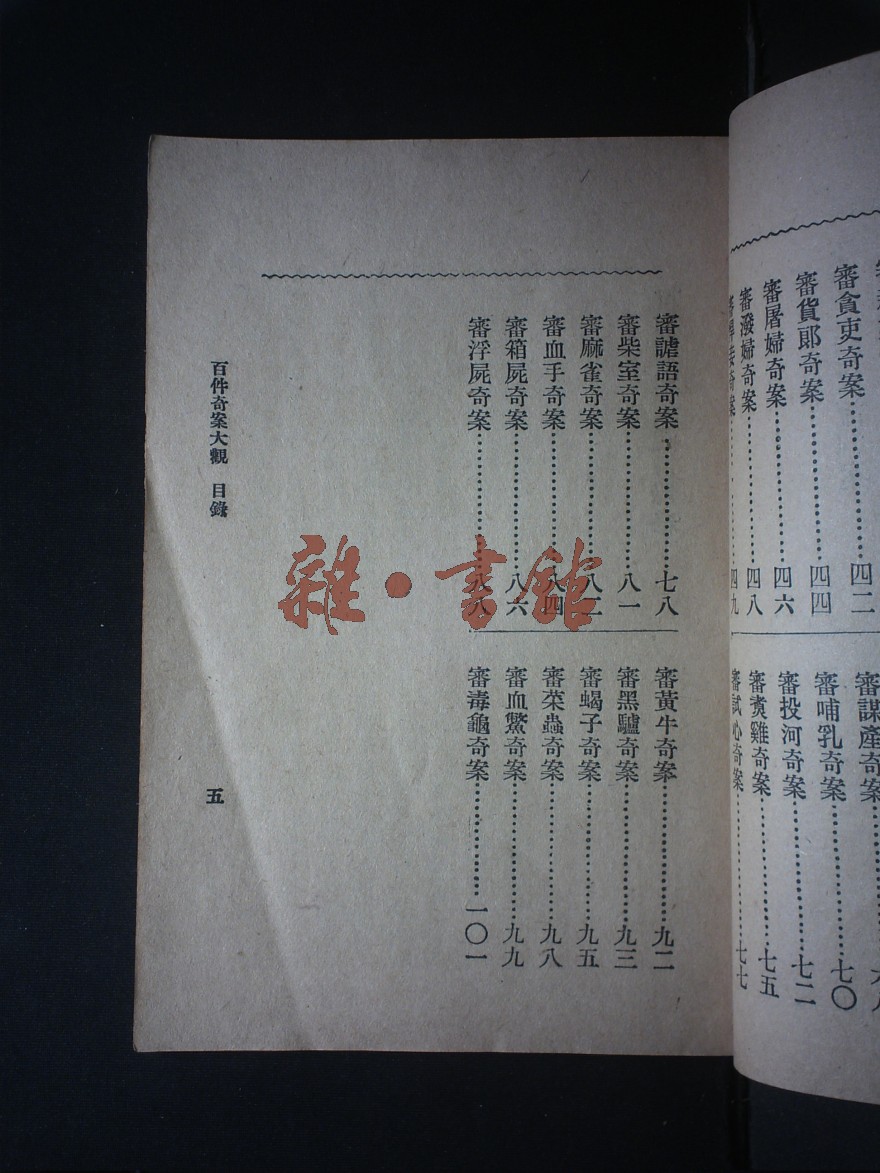 審貪吏奇案……四二
審貨郎奇案……四四
審屠婦奇案……四六
審潑婦奇案……四八
審謀產奇案
審哺乳奇案……七〇
審投河奇案……七二
審煑雞奇案……七五
審試心奇案……七七
審謔語奇案……七八
審柴室奇案……八一
審麻雀奇案……八三
審血手奇案……八四
審箱屍奇案……八六
審浮屍奇案……八八
審黃牛奇案……九二
審黑驢奇案……九三
審蝎子奇案……九五
審菜蟲奇案……九八
審血鱉奇案……九九
審毒龜奇案……一〇一
百件奇案大觀　目錄
五
雜·書館